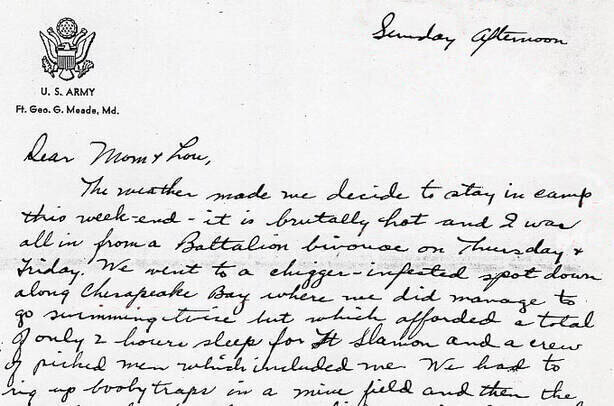 Sunday Afternoon
U. S. ARMY
Ft. Geo. G. Meade, Md.
Dear Mom & Lou,
The weather made me decide to stay in camp
this week-end - it is brutally hot and I was
all in from a Battalion bivouac on Thursday &
Friday. We went to a chigger-infested spot down
along Chesapeake Bay where we did manage to
go swimming twice but which afforded a total
of only 2 hours sleep for Lt and a crew
of picked men which included me. We had to
rig up booby traps in a mine field and then the